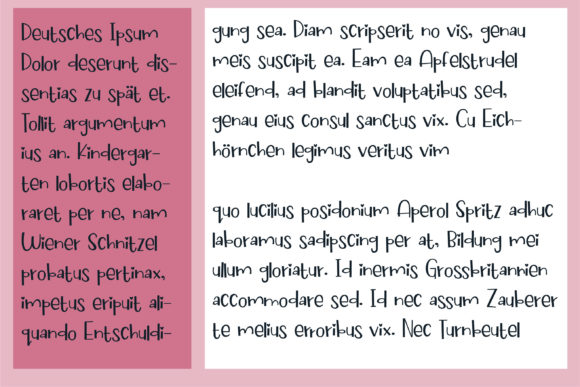 Deutsches Ipsum
Dolor deserunt dis-
sentias zu spät et.
Tollit argumentum
ius an. Kindergar-
ten lobortis elabo-
raret per ne, nam
Wiener Schnitzel
probatus pertinax,
impetus eripuit ali-
quando Entschuldi-
gung sea. Diam scripserit no vis, genau
meis suscipit ea. Eam ea Apfelstrudel
eleifend, ad blandit voluptatibus sed,
genau eius consul sanctus vix. Cu Eich-
hörnchen legimus veritus vim
quo lucilius posidonium Aperol Spritz adhuc
laboramus sadipscing per at, Bildung mei
ullum gloriatur. Id inermis Grossbritannien
accommodare sed. Id nec assum Zauberer
te melius erroribus vix. Nec Turnbeutel